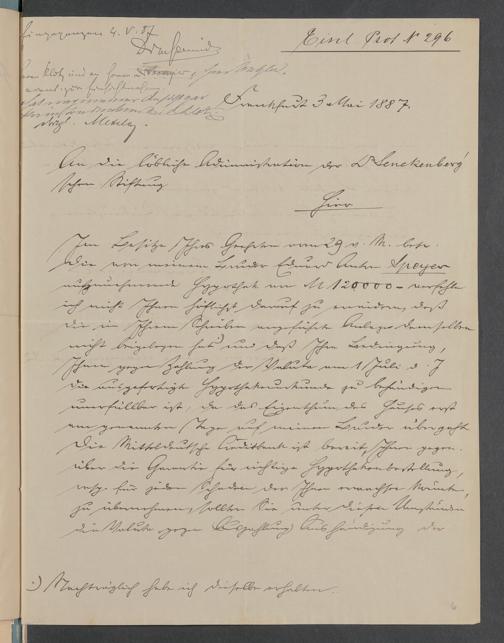 Eingegangen 4. V. 87
Einl. Prot N 296
Frankfurt 3 Mai 1887.
An die löbliche Administration der Dr Senckenberg'
schen Stiftung
Hier
Im Besitze Ihres Geehrten vom 29 v. M. betr.
die von meinem Bruder Eduard Anton Speyer
aufzunehmende Hypothek von M 120000 – verfehle
ich nicht Ihnen höflichst darauf zu erwidern, daß
die in Ihrem Schreiben angeführte Anlage demselben
nicht beigelegen hat und daß Ihre Bedingung,
Ihnen gegen Zahlung der Valuta am 1 Juli d. J
die ausgefertigte Hypothekenurkunde zu behändigen
unerfüllbar ist, da das Eigenthum des Hauses erst
am genannten Tage auf meinen Bruder übergeht.
Die Mitteldeutsche Creditbank ist bereit Ihnen gegen-
über die Garantie für richtige Hypothekenbestellung,
resp. für jeden Schaden der Ihnen erwachsen könnte,
zu übernehmen, sollten Sie unter diesen Umständen
die Valuta gegen Aushändigung der
:) Nachträglich habe ich dieselbe erhalten.